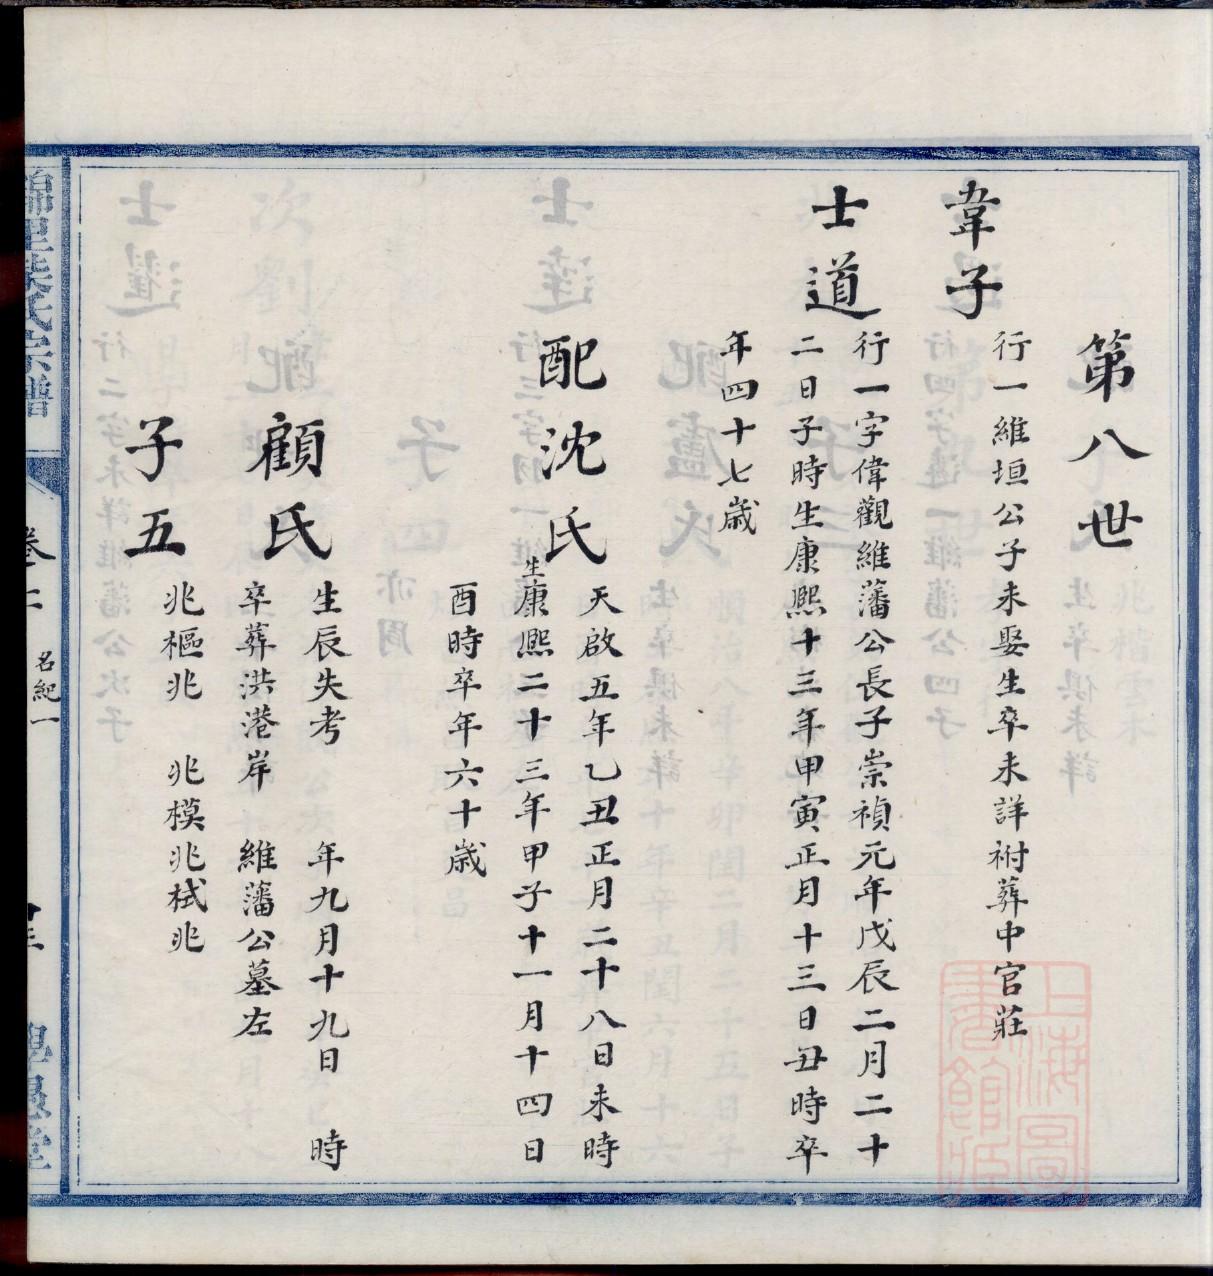 第八世
韋子
行一維垣公子未娶生卒未詳祔葬中官莊
士道
行一字偉觀維藩公長子崇禎元年戊辰二月二十
二日子時生康熙十三年甲寅正月十三日丑時卒
年四十七歲
配沈氏
天啟五年乙丑正月二十八日未時
生康熙二十三年甲子十一月十四日
酉時卒年六十歲
顧氏
生辰失考 年九月十九日 時
卒葬洪港岸 維藩公墓左
子五
兆樞兆 兆模兆栻兆
氏宗譜
名紀一
上海圖書館藏